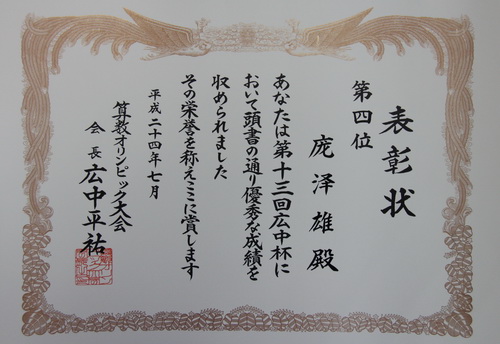 表彰状
第四位
庞泽雄殿
あなたは第十三回広中杯に
おいて頭書の通り優秀な成績を
収められました
その栄誉を称えここに賞します
平成二十四年七月
算数オリンピック大会
会長 広中平祐